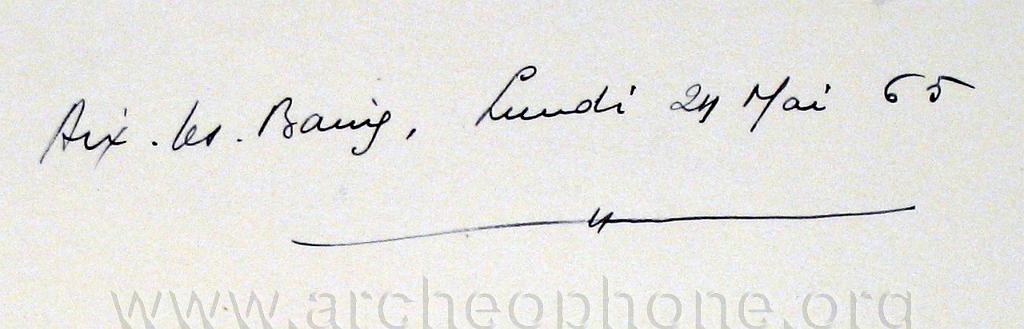 Aix-les-Bains, Lundi 24 Mai 65
www.archeophone.org